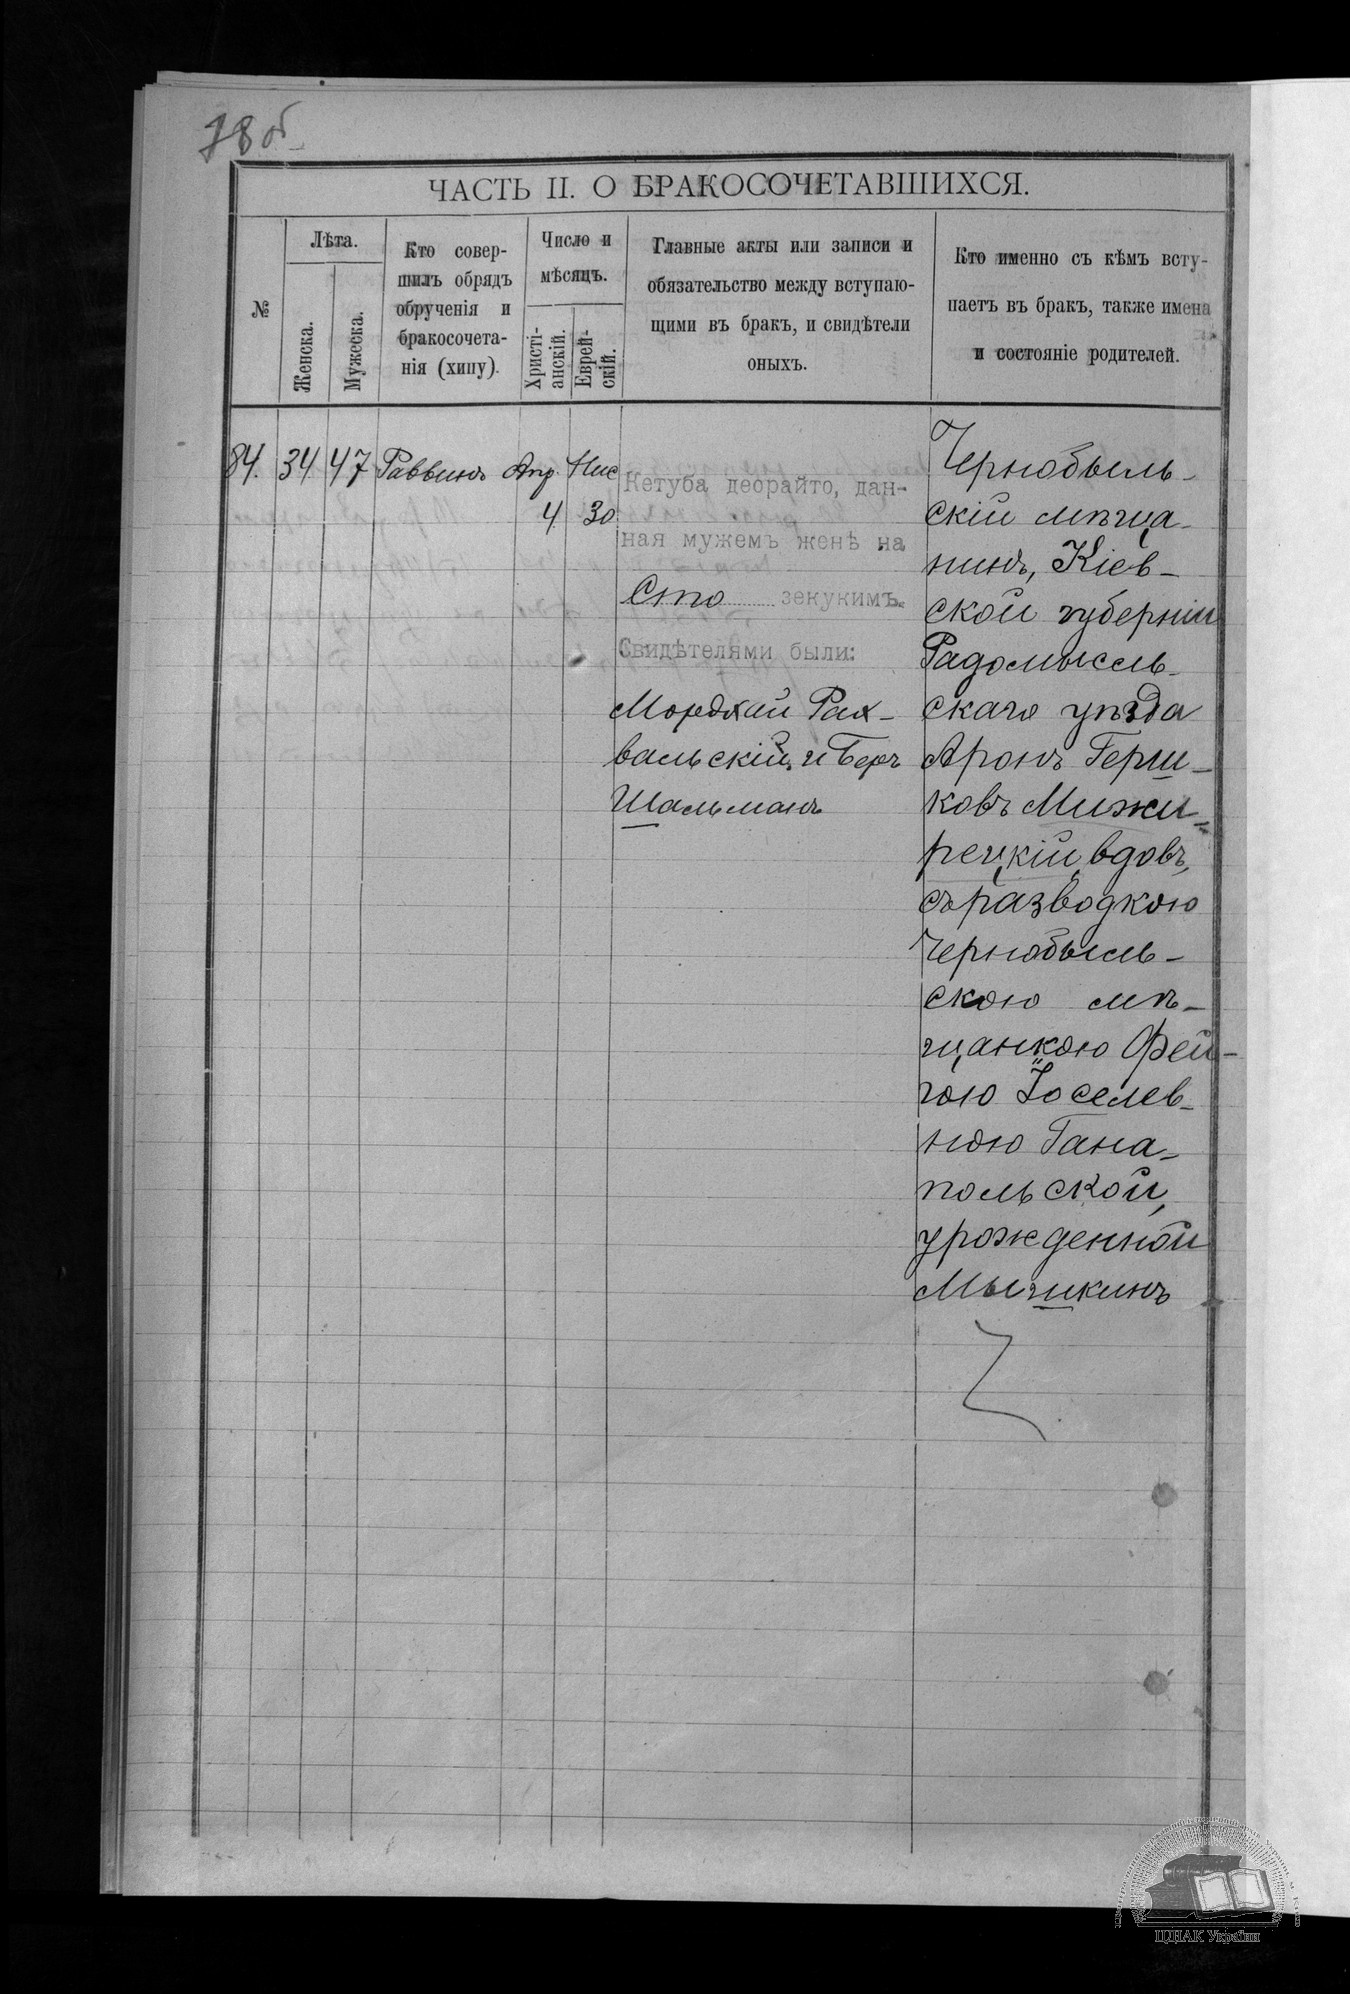 78 об
ЧАСТЬ II. О БРАКОСОЧЕТАВШИХСЯ.
№
Лѣта.
Женска.
Мужеска.
Кто совер-
шилъ обрядъ
обрученія и
бракосочета-
нія (хипу).
Число и
мѣсяцъ.
Христі-
анскій.
Еврей-
скій.
Главные акты или записи и
обязательство между вступаю-
щими въ бракъ, и свидѣтели
оныхъ.
Кто именно съ кѣмъ всту-
паетъ въ бракъ, также имена
и состояніе родителей.
84. 34 47 Раввинъ Апр. Нис
4 30
Кетуба деорайто, дан-
ная мужемъ женѣ на
Сто зекукимъ.
Свидѣтелями были:
Мордхай Рах-
вальскій и Беръ
Шальманъ
Чернобыль-
скій мѣща-
нинъ, Кіев-
ской губерніи
Радомысль-
скаго уѣзда
Аронъ Герш-
ковъ Мижи-
рецкій, вдовъ,
съ разводкою
Чернобыль-
скою мѣ-
щанкою Фей-
гою Іоселев-
ною Гана-
польской,
урожденной
Мышкинъ
ЦДІАК України